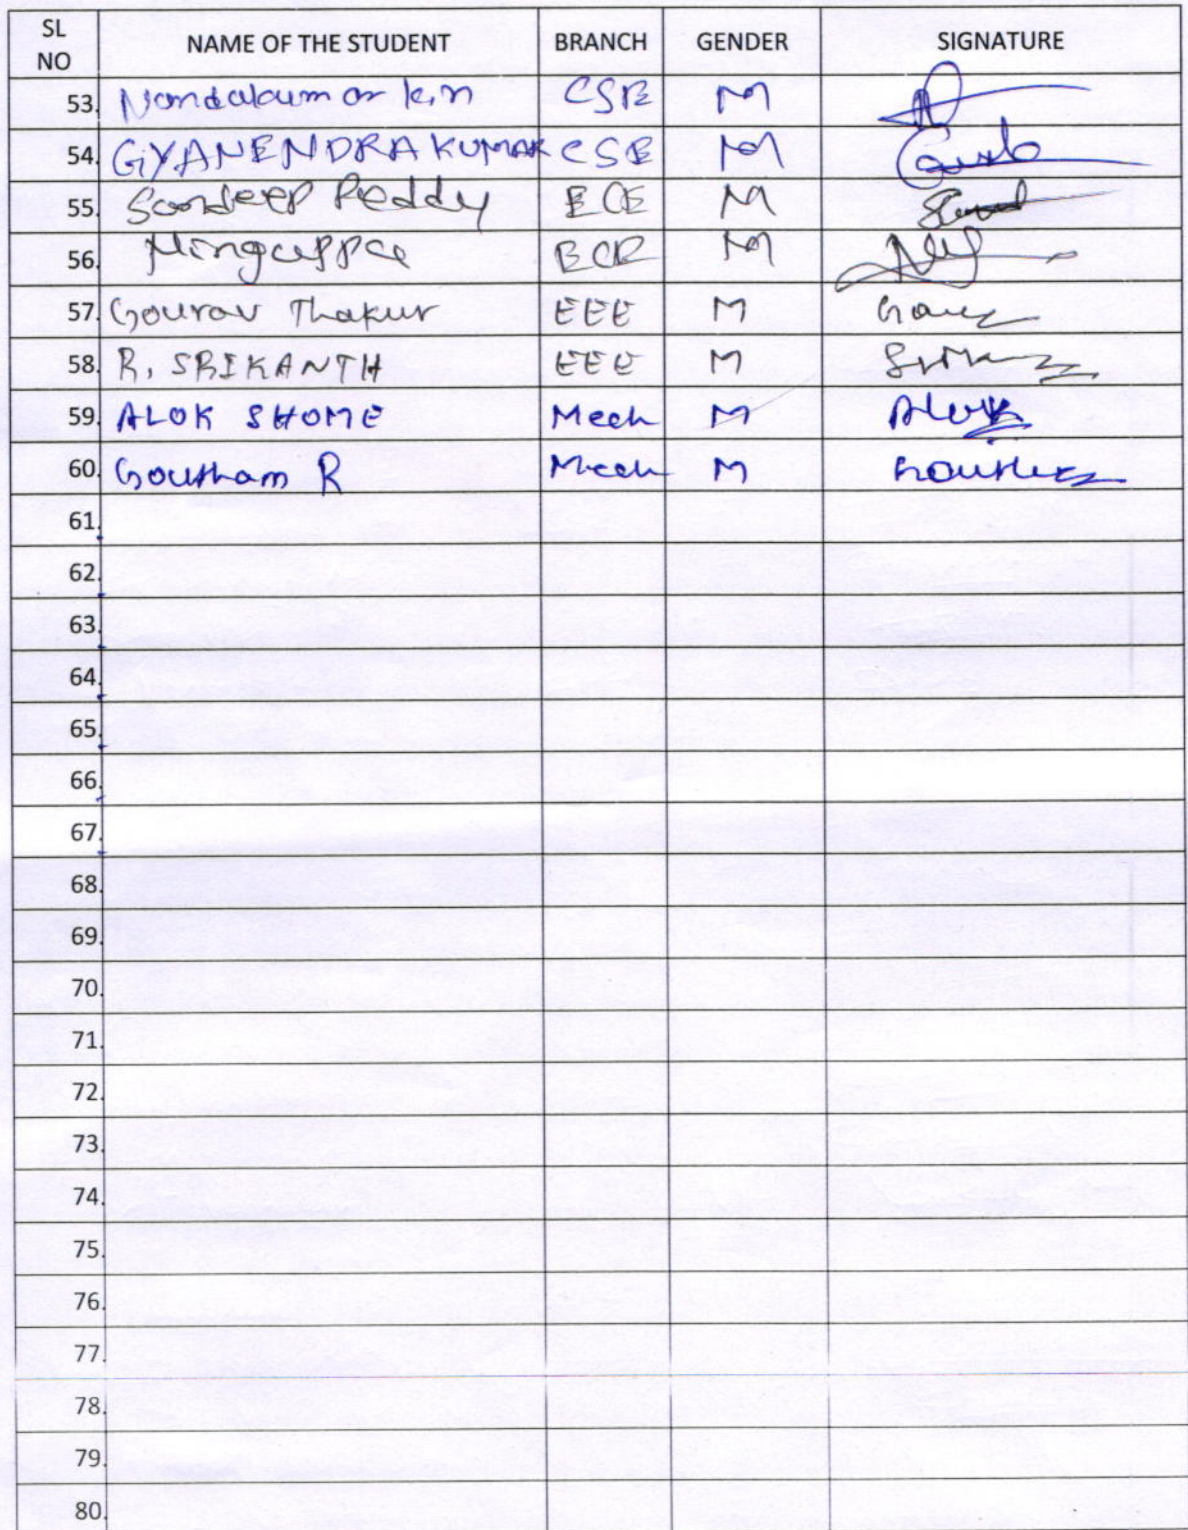 SL NO NAME OF THE STUDENT BRANCH GENDER SIGNATURE
53. Nandakumar k.n CSE M
54. GYANENDRA KUMAR CSE M
55. Sandeep Reddy ECE M
56. Ningappa ECE M
57. Gourav Thakur EEE M
58. R. SRIKANTH EEE M
59. ALOK SHOME Mech M Alok
60. Goutham R Mech M
61.
62.
63.
64.
65.
66.
67.
68.
69.
70.
71.
72.
73.
74.
75.
76.
77.
78.
79.
80.